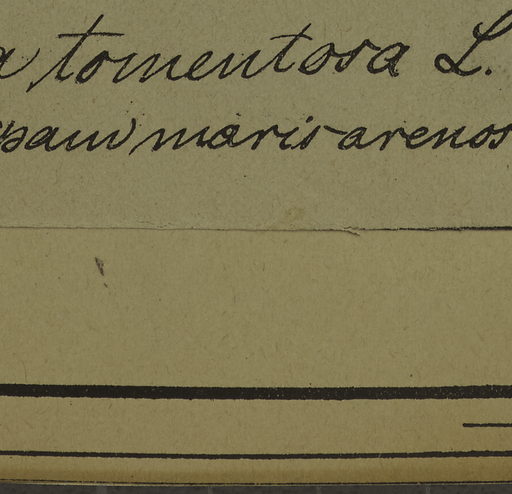 a tomentosa L.
ripam maris arenos